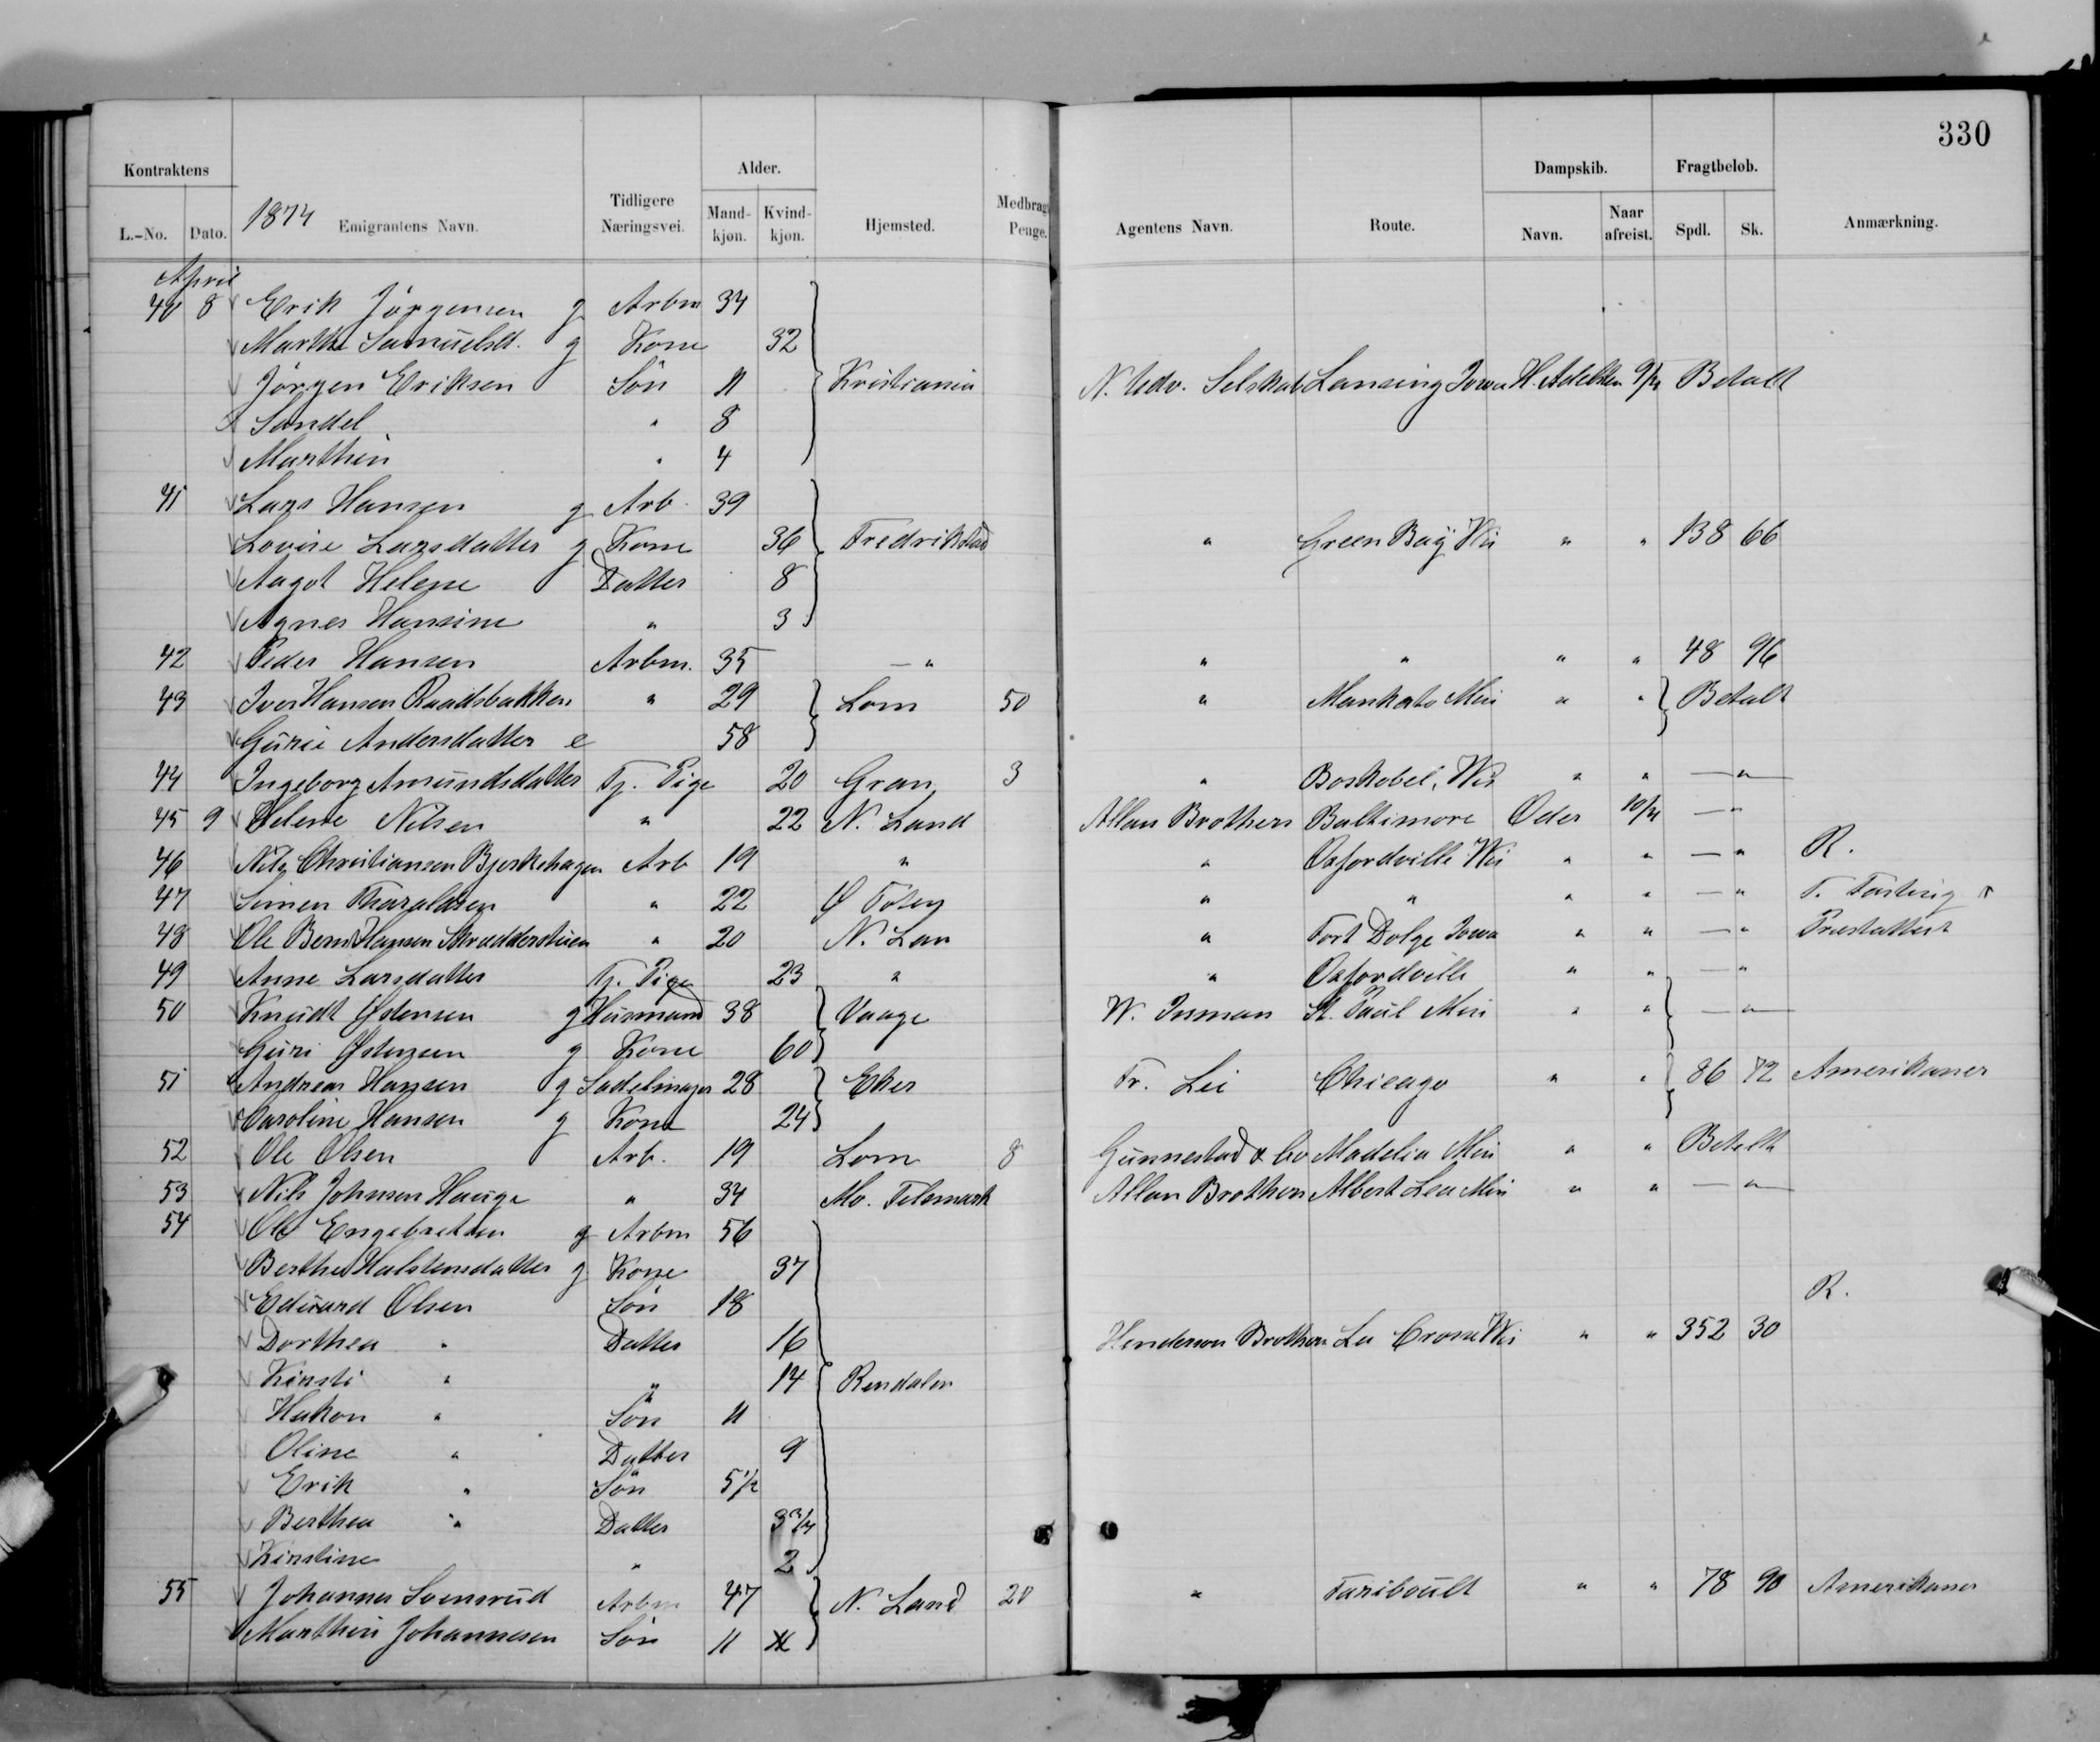 330
Kontraktens Alder. Dampskib. Fragtbeløb.
L.-No. Dato. 1874 Emigrantens Navn. Tidligere Næringsvei. Mand-kjøn. Kvind-kjøn. Hjemsted. Medbragt Penge. Agentens Navn. Route. Navn. Naar afreist. Spdl. Sk. Anmærkning.
April
40 8 Erik Jörgensen g Arbm 34
Marthe Samuelsd. g Kone 32
Jörgen Eriksen Sön 11 Kristiania N. Udv. Selskab Lansing Iowa H. Adelsten 9/4 Betalt
Sandel " 8
Marthin " 4
41 Lars Hansen g Arb. 39
Lovise Larsdatter g Kone 36 Fredrikstad " Green Bay Wis " " 138 66
Aagot Helene Datter 8
Agnes Hansine " 3
42 Peder Hansen Arbm. 35 — " " " " " 48 96
43 Iver Hansen Raadsbakken " 29 Lom 50 " Mankato Min " " Betalt
Gurie Andersdatter e 58
44 Ingeborg Amundsdatter Tj. Pige 20 Gran 3 " Boskobel, Wis " " — " —
45 9 Helene Nilsen " 22 N. Land Allan Brothers Baltimore Oder 10/4 — "
46 Nils Christiansen Bjerkehagen Arb 19 " " Oxfordville Wis " " — " R.
47 Simen Tharaldsen " 22 Ø Toten " " " " — " T. Fasting
48 Ole Bernt Hansen Skrædderstuen " 20 N. Lan " Fort Dolge Iowa " " — " Præstattest
49 Anne Larsdatter Tj. Pige 23 " " Oxfordville " " — "
50 Knudt Østensen g Husmand 38 Vaage W. Inman St. Paul Min " " — " —
Guri Østensen g Kone 60
51 Andreas Hansen g Sadelmager 28 Eker Fr. Lie Chicago " " 86 72 Amerikaner
Caroline Hansen g Kone 24
52 Ole Olsen Arb. 19 Lom 8 Gunnestad & Co Madelia Min " " Betalt
53 Nils Johnsen Hauge " 34 Mo. Telemark Allan Brothers Albert Lea Min " " — " —
54 Ole Engebretsen g Arbm 56
Berthe Halstensdatter g Kone 37
Eduard Olsen Sön 18 R.
Dorthea " Datter 16 Henderson Brothers La Crosse Wis " " 352 30
Kirsti " " 14 Rendalen
Hakon " Sön 11
Oline " Datter 9
Erik " Sön 5 1/2
Berthea " Datter 3 3/4
Kirstine " 2
55 Johannes Svensrud Arbm 47 N. Land 20 " Fariboult " " 78 90 Amerikaner
Marthin Johannesen Sön 11